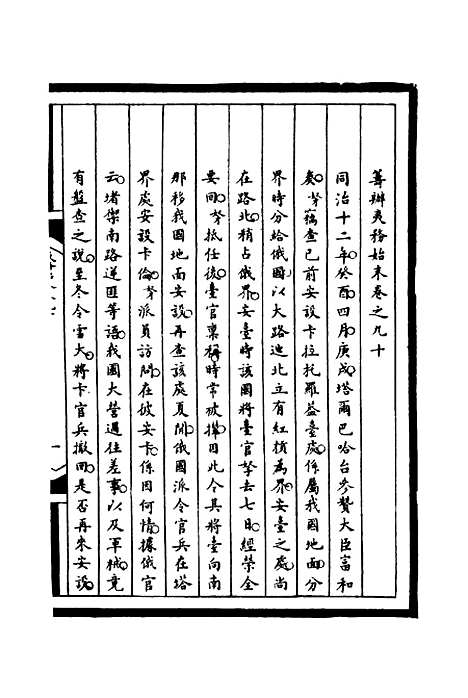 籌辦夷務始末卷之九十
同治十二年癸酉四月庚戌塔爾巴哈台參贊大臣富和
奏奴才竊查已前安設卡拉托羅蓋臺處係屬我國地面分
界時分給俄國以大路迤北立有紅樁為界安臺之處尚
在路北稍占俄界安臺時該國將臺官拏去七日經榮全
要回奴才抵任後臺官稟稱時常被攪因此令其將臺向南
那移我國地面安設再查該處夏間俄國派令官兵在塔
界處安設卡倫奴才派員訪問在彼安卡係因何情據俄官
云堵禦南路逆匪等語我國大營過往差事以及軍械竟
有盤查之說至冬令雪大將卡官兵撤回是否再來安設